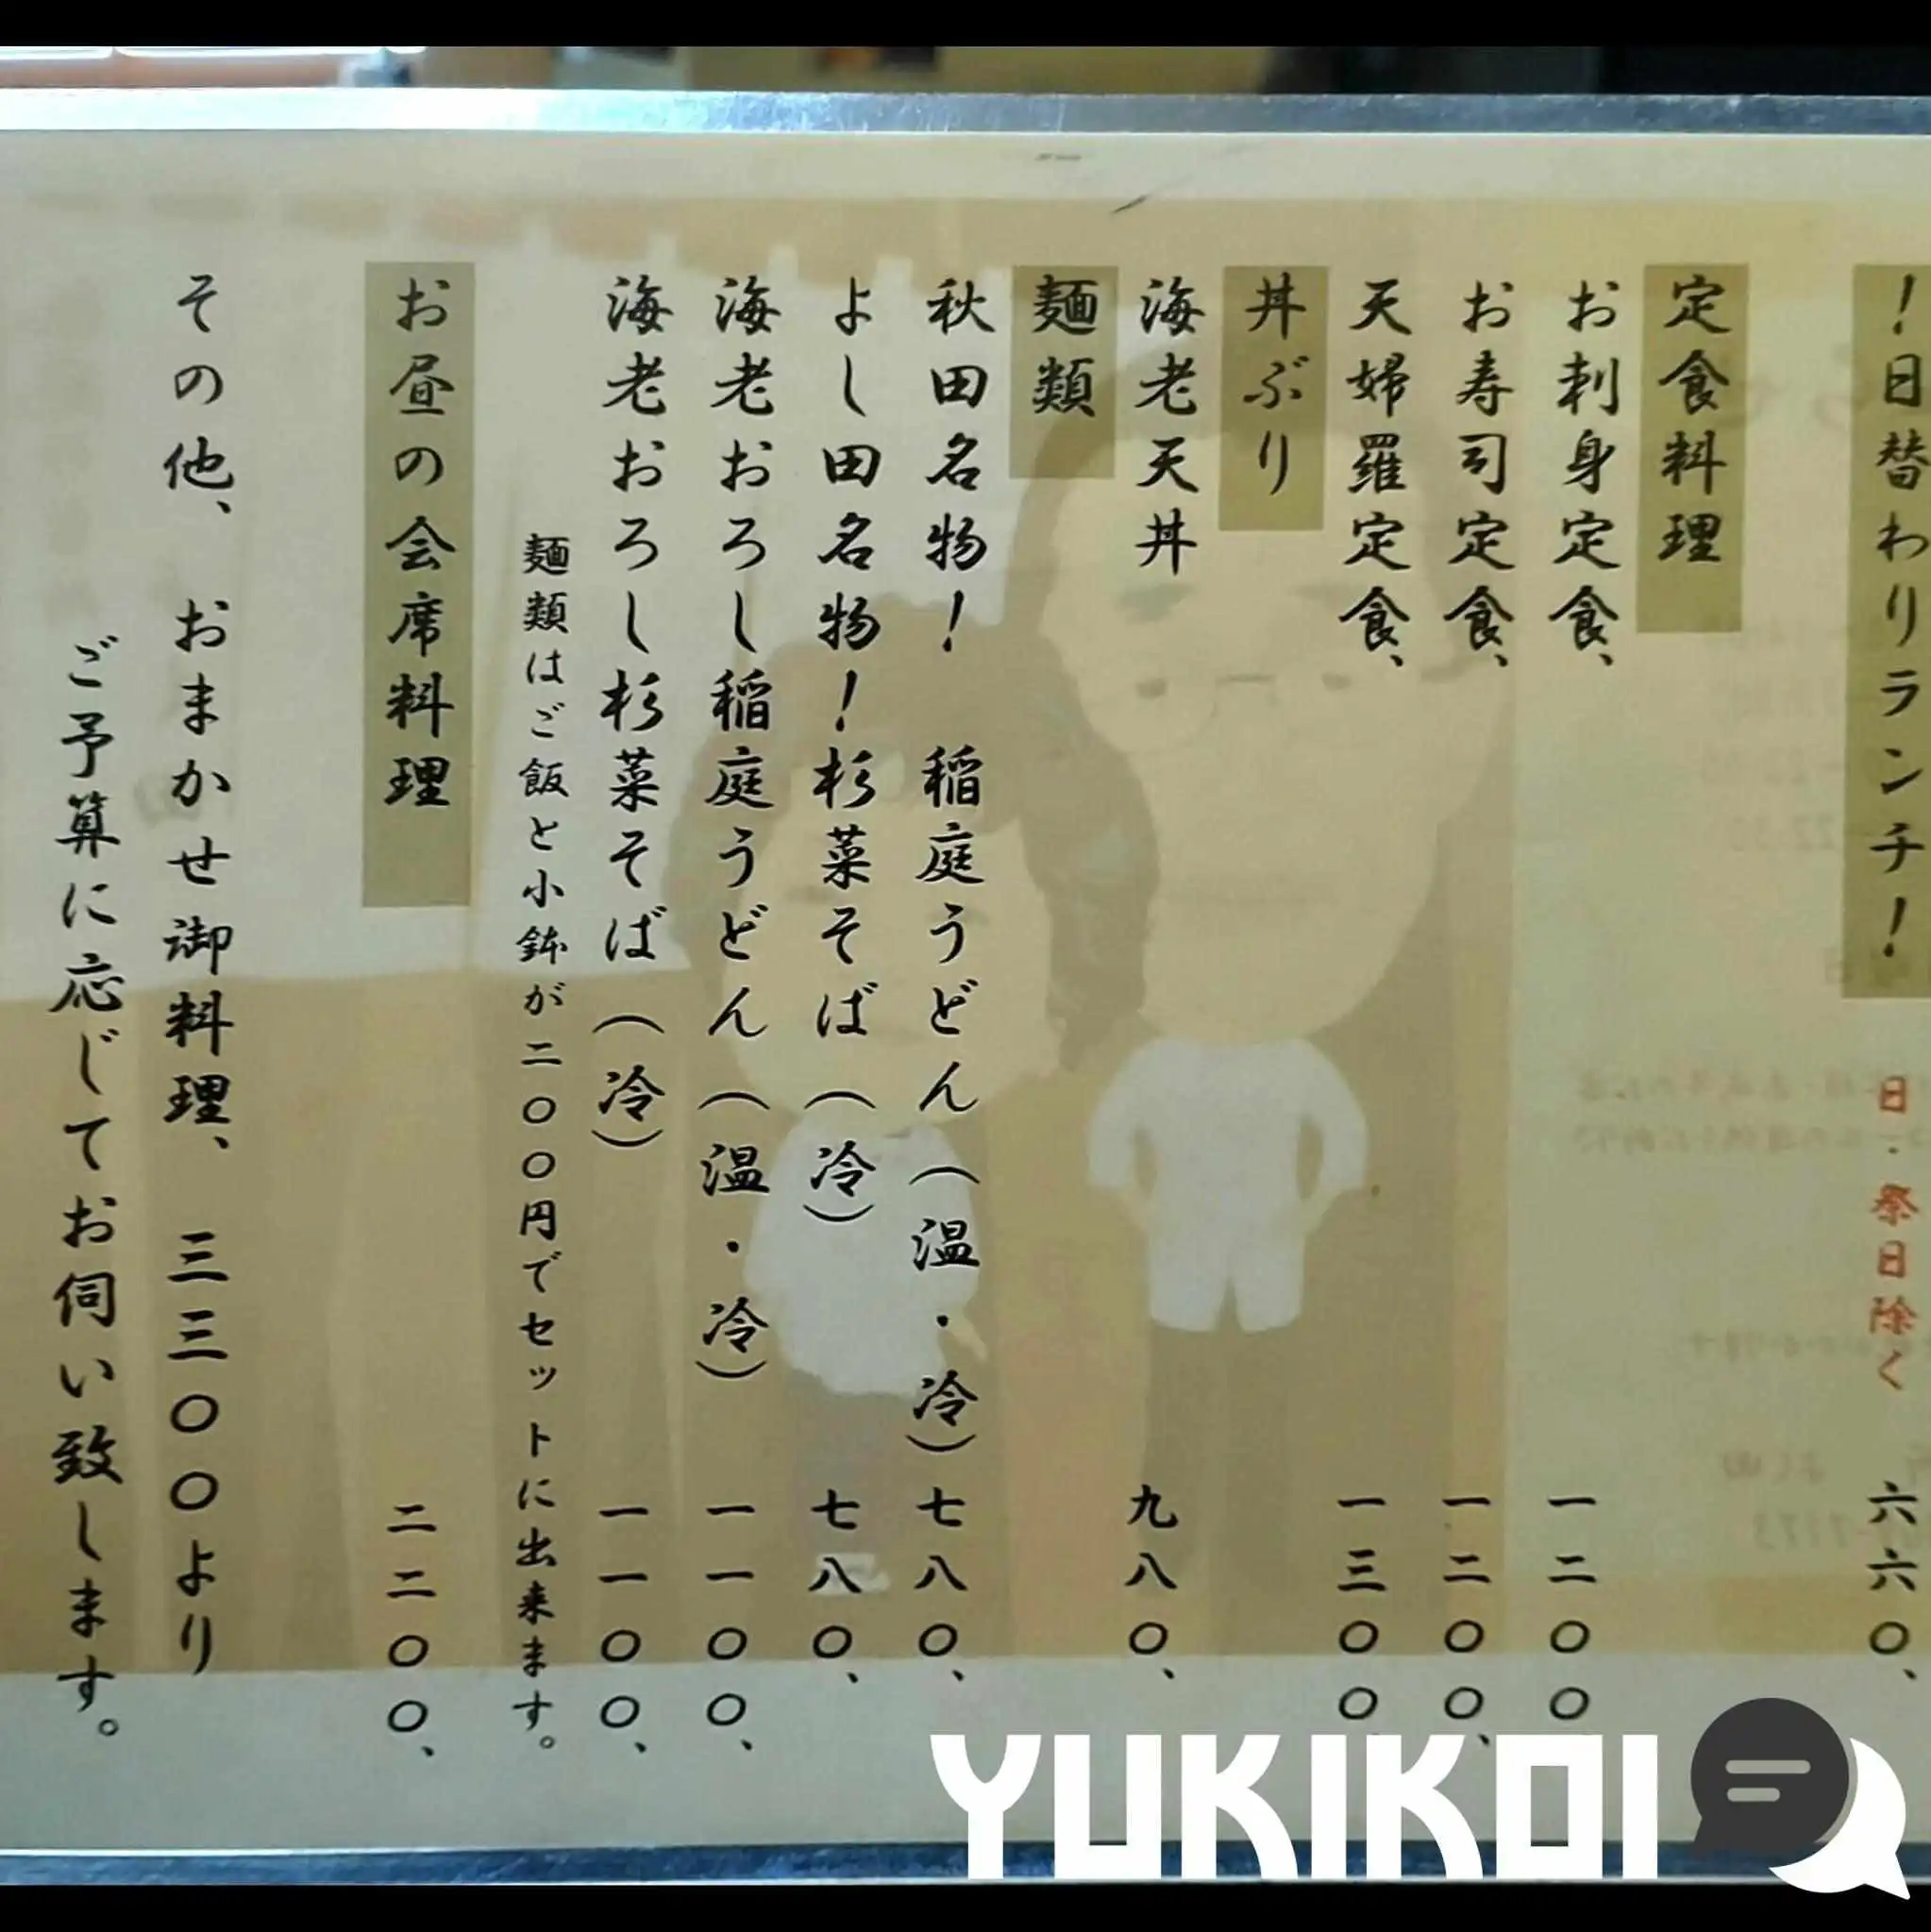 ！日替わりランチ！ 日・祭日除く 六六〇、
定食料理
お刺身定食、 一二〇〇
お寿司定食、 一二〇〇、
天婦羅定食、 一三〇〇
丼ぶり
海老天丼 九八〇、
麺類
秋田名物！ 稲庭うどん（温・冷） 七八〇、
よし田名物！杉菜そば（冷） 七八〇、
海老おろし稲庭うどん（温・冷） 一一〇〇、
海老おろし杉菜そば（冷） 一一〇〇、
麺類はご飯と小鉢が二〇〇円でセットに出来ます。
お昼の会席料理 二二〇〇、
その他、 おまかせ御料理、 三三〇〇より
ご予算に応じてお伺い致します。
YUKIKOI